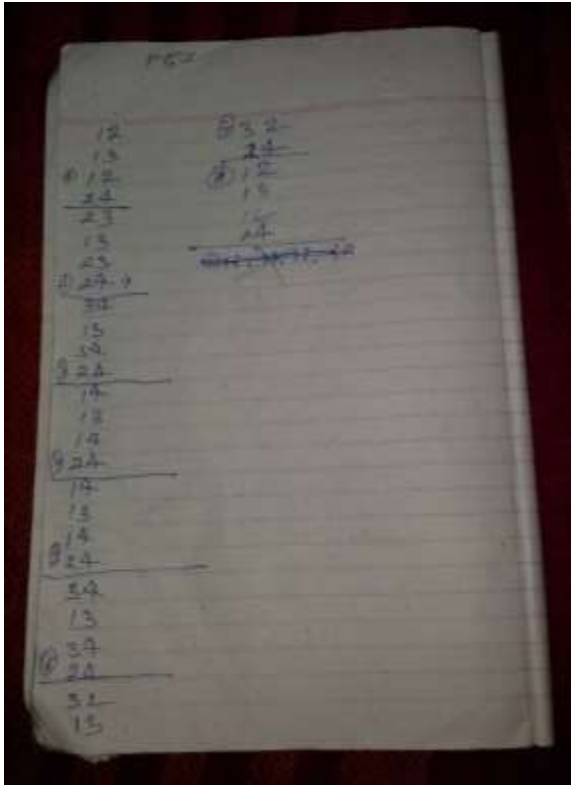 12
13
12
24
23
13
23
24
34
13
34
24
14
13
14
24
14
13
14
24
34
13
34
24
32
13
32
24
12
13
12
24